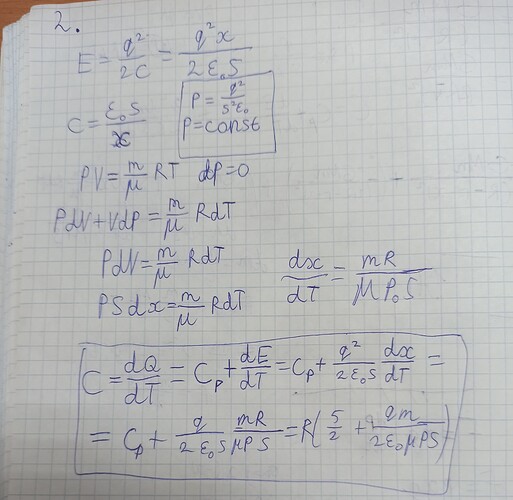 2.
E = q²/2C = q²x/2ε₀S
C = ε₀S/x
P = q²/S²ε₀
P = const
PV = m/μ RT dP = 0
PdV + VdP = m/μ RdT
PdV = m/μ RdT
PSdx = m/μ RdT
dx/dT = mR/μP₀S
C = dQ/dT = Cₚ + dE/dT = Cₚ + q²/2ε₀S dx/dT =
= Cₚ + q/2ε₀S mR/μPS = R(5/2 + qm/2ε₀μPS)